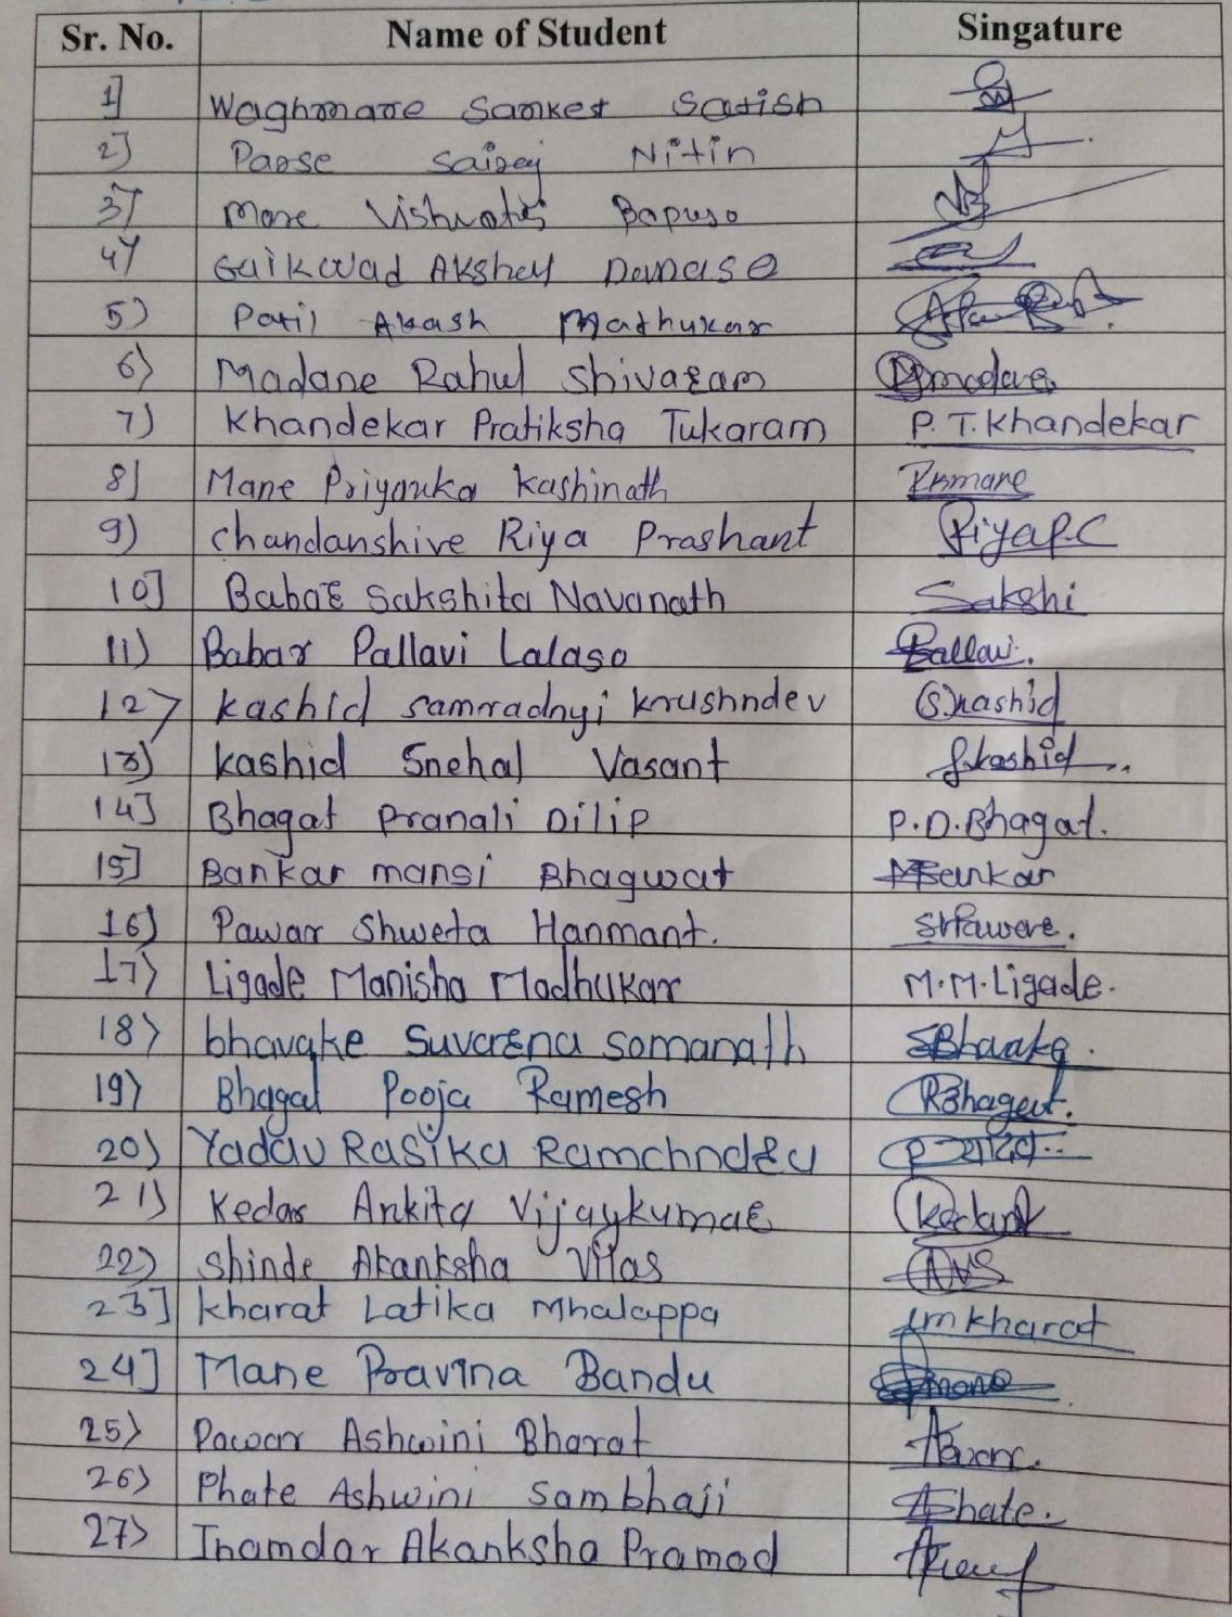 Sr. No. Name of Student Singature
1] Waghmare Sanket Satish
2] Parse Sairaj Nitin
3] More Vishvatej Bapuso
4] Gaikwad Akshay Danaso
5) Patil Akash Mathukar
6) Madane Rahul Shivaram Rmadane
7) Khandekar Pratiksha Tukaram P. T. Khandekar
8] Mane Priyanka Kashinath Pkmane
9) Chandanshive Riya Prashant Riya P.C
10] Babar Sakshita Navanath Sakshi
11) Babar Pallavi Lalaso Pallavi.
12> Kashid Samradnyi Krushndev Skashid
13) Kashid Snehal Vasant Skashid
14] Bhagat Pranali Dilip P.D.Bhagat.
15] Bankar mansi Bhagwat MBankar
16) Pawar Shweta Hanmant. SHPawar.
17) Ligade Manisha Madhukar M.M.Ligade.
18> bhavake Suvarna somanath SBhavake.
19) Bhagat Pooja Ramesh PRBhagat.
20) Yadav Rasika Ramchndra
21) Kedar Ankita Vijaykumar Kedar
22) Shinde Akanksha Vilas AVS
23] Kharat Latika Mhalappa LmKharat
24] Mane Pravina Bandu mane
25) Pawar Ashwini Bharat APawar.
26) Phate Ashwini Sambhaji APhate.
27> Inamdar Akanksha Pramod